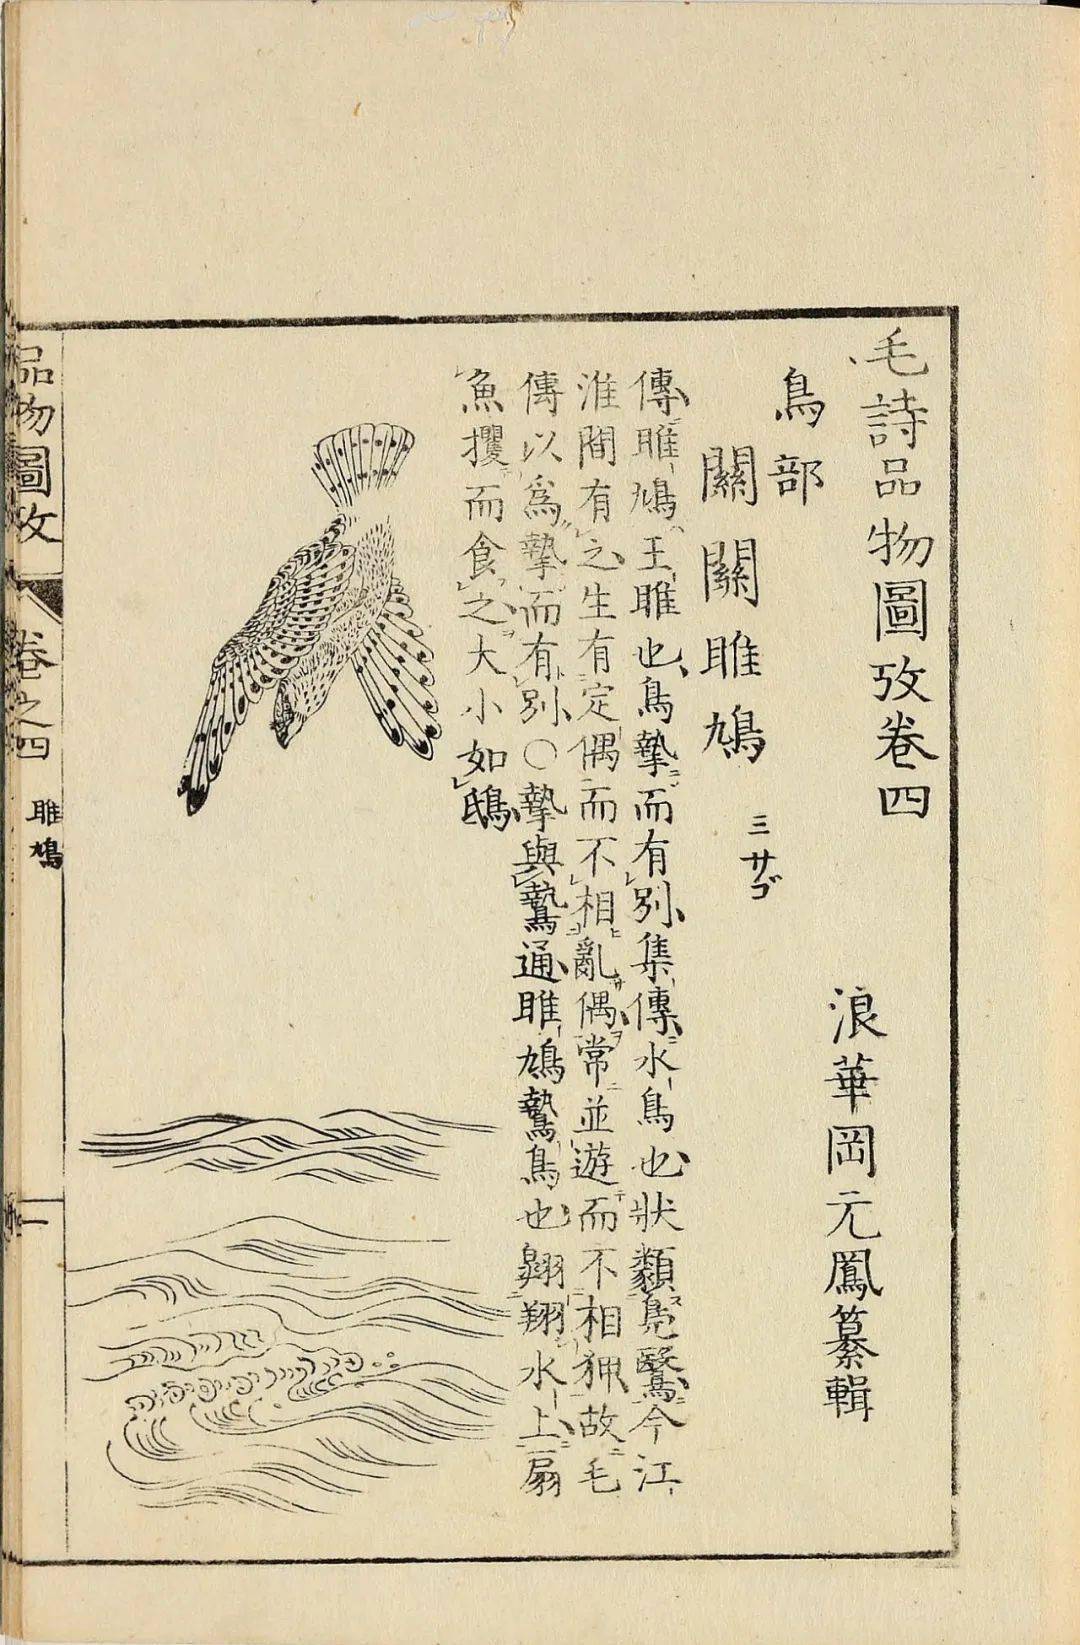 毛詩品物圖攷卷四
浪華岡元鳳纂輯
鳥部
關關雎鳩
ミサゴ
傳雎鳩王雎也鳥摯而有別集傳水鳥也狀類鳧鷖今江
淮間有之生有定偶而不相亂偶常並遊而不相狎故毛
傳以爲摯而有別○摯與鷙通雎鳩鷙鳥也翱翔水上扇
魚攫而食之大小如鴟
品物圖攷
卷之四
雎鳩
一